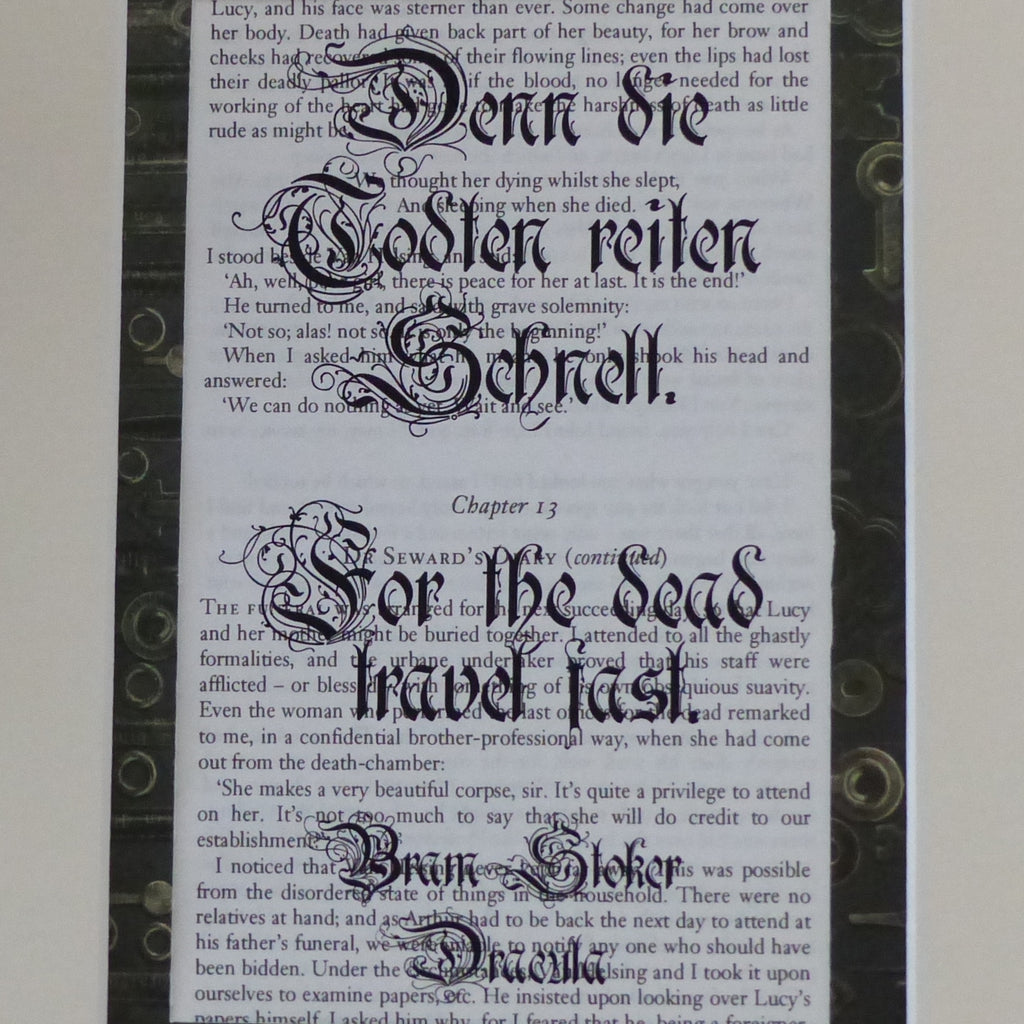 Lucy, and his face was sterner than ever. Some change had come over
her body. Death had given back part of her beauty, for her brow and
cheeks had recovered of their flowing lines; even the lips had lost
their deadly pallor. It was if the blood, no longer needed for the
working of the heart had gone to make the harshness of death as little
rude as might be
Denn die
We thought her dying whilst she slept,
And sleeping when she died.
Todten reiten
I stood beside Van Helsing and said:
'Ah, well, girl, there is peace for her at last. It is the end!'
He turned to me, and said with grave solemnity:
'Not so; alas! not so. is only the beginning!'
Schnell.
When I asked him what he only shook his head and
answered:
'We can do nothing as yet. Wait and see.'
Chapter 13
DR SEWARD'S DIARY (continued)
For the dead
THE FUNERAL WAS arranged for the next succeeding day, so that Lucy
and her mother might be buried together. I attended to all the ghastly
formalities, and the urbane undertaker proved that his staff were
travel fast.
afflicted – or blessed with something of his own obsequious suavity.
Even the woman who performed the last offices for the dead remarked
to me, in a confidential brother-professional way, when she had come
out from the death-chamber:
'She makes a very beautiful corpse, sir. It's quite a privilege to attend
on her. It's not too much to say that she will do credit to our
establishment!'
Bram Stoker
I noticed that never kept far away. This was possible
from the disordered state of things in the household. There were no
relatives at hand; and as Arthur had to be back the next day to attend at
his father's funeral, we were unable to notify any one who should have
Dracula
been bidden. Under the Helsing and I took it upon
ourselves to examine papers, etc. He insisted upon looking over Lucy's
papers himself. I asked him why, for I feared that he, being a foreigner,